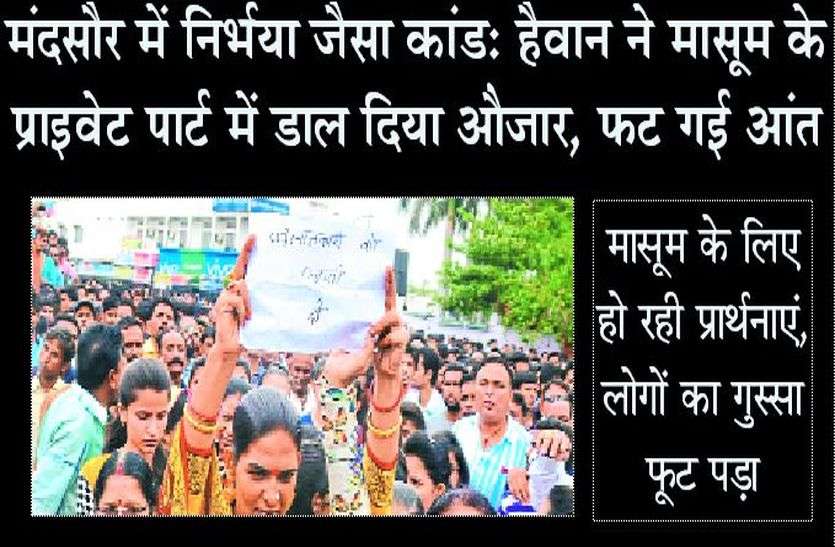 मंदसौर में निर्भया जैसा कांडः हैवान ने मासूम के
प्राइवेट पार्ट में डाल दिया औजार, फट गई आंत
मासूम के लिए
हो रही प्रार्थनाएं,
लोगों का गुस्सा
फूट पड़ा